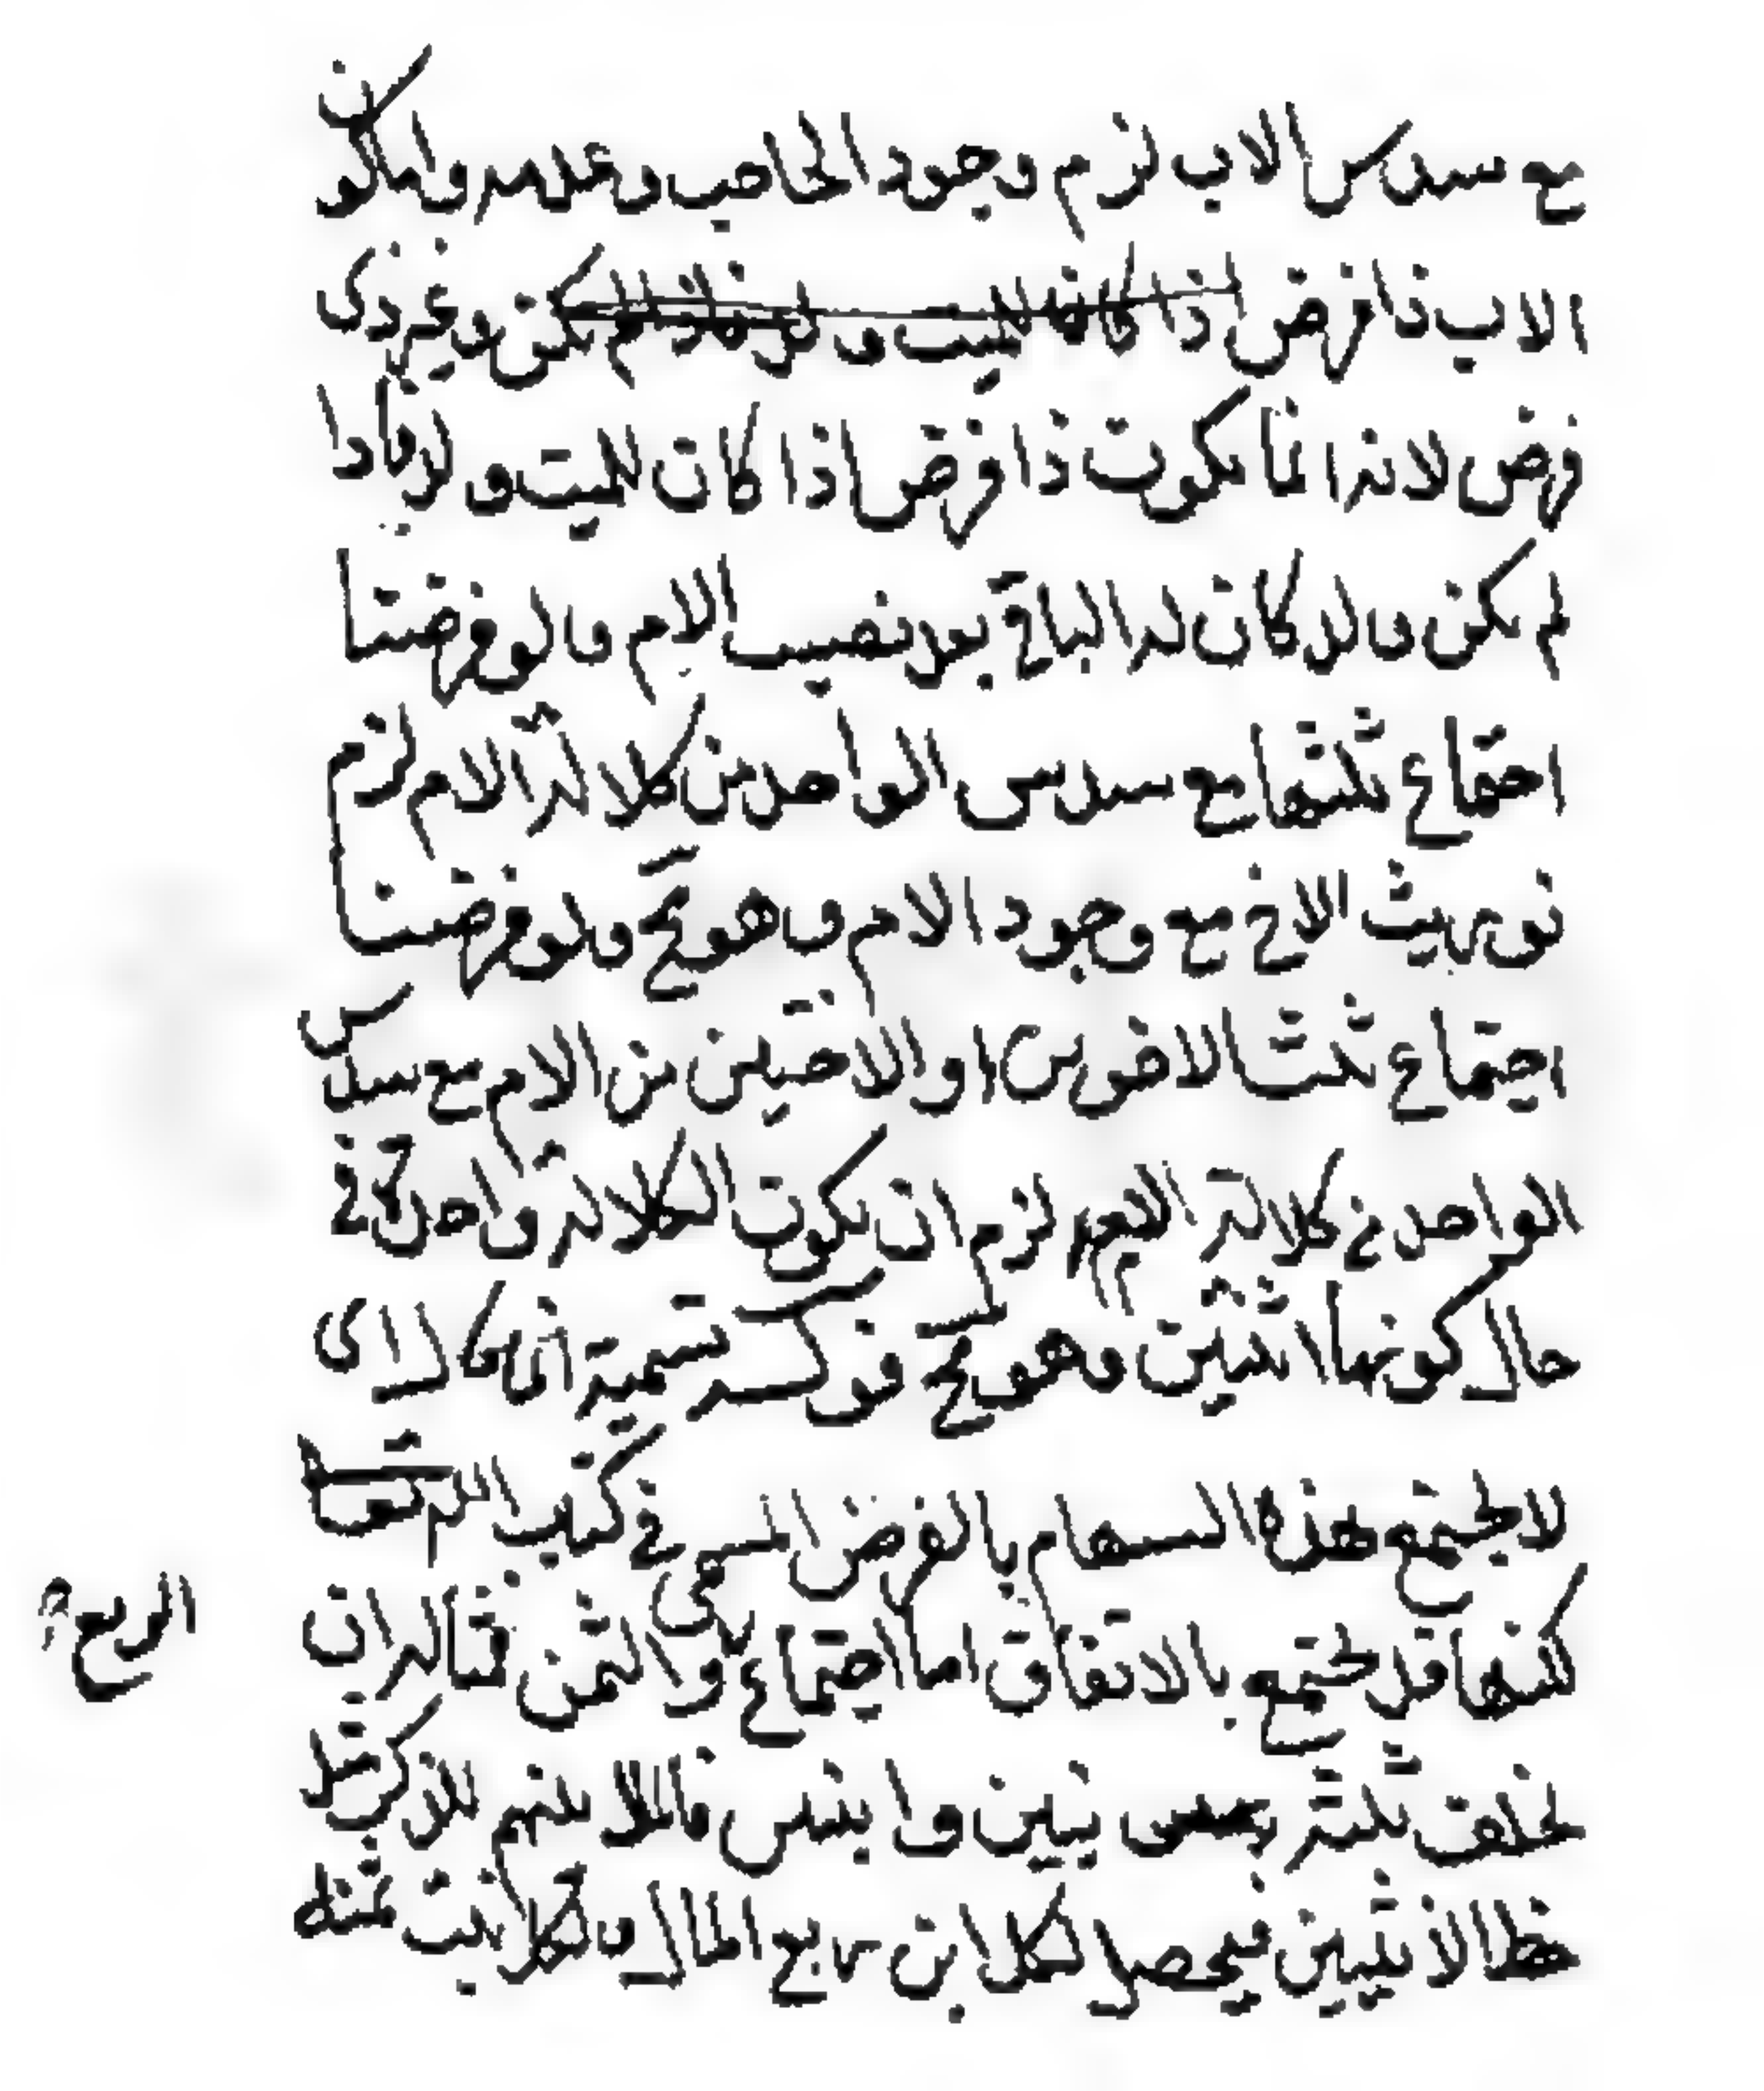 مع سدس الاب لزم وجود الحاجب وعدمه واما كون
الاب ذا فرض اذا كان للميت ولد فاذا لم يكن وغير ذى
فرض لانه انما يكون ذا فرض اذا كان للميت ولد فاذا
لم يكن ولد كان له الباقى بعد نصيب الام ولو فرضنا
اجتماع ثلثها مع سدس الواحد من كلالة الام لزم
توريث الاخ مع وجود الام وهو مح ولو فرضنا
اجتماع ثلث الاخوين او الاختين من الام مع سدس
الواحد من كلالة الام لزم ان يكون الكلالة واحدة فى
حال كونها اثنتين وهو مح
لا يجتمع هذه السهام بالفرض المسمى فى كتاب الله
لكنها قد تجتمع بالاتفاق اما اجتماع الربع والثمن فمثاله ان
يخلف ثلثة بنين وابنتين فالمال بينهم للذكر مثل
حظ الانثيين فيحصل لكل ابن ربع المال ولكل بنت ثمنه